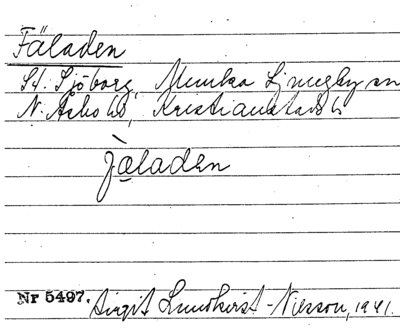 Fäladen
St. Sjöborg, Munka Ljungby sn
N. Åsbo hd, Kristianstads l.
fæ̀laden
Nr 5497. Birgit Lundkvist-Nilsson, 1941.